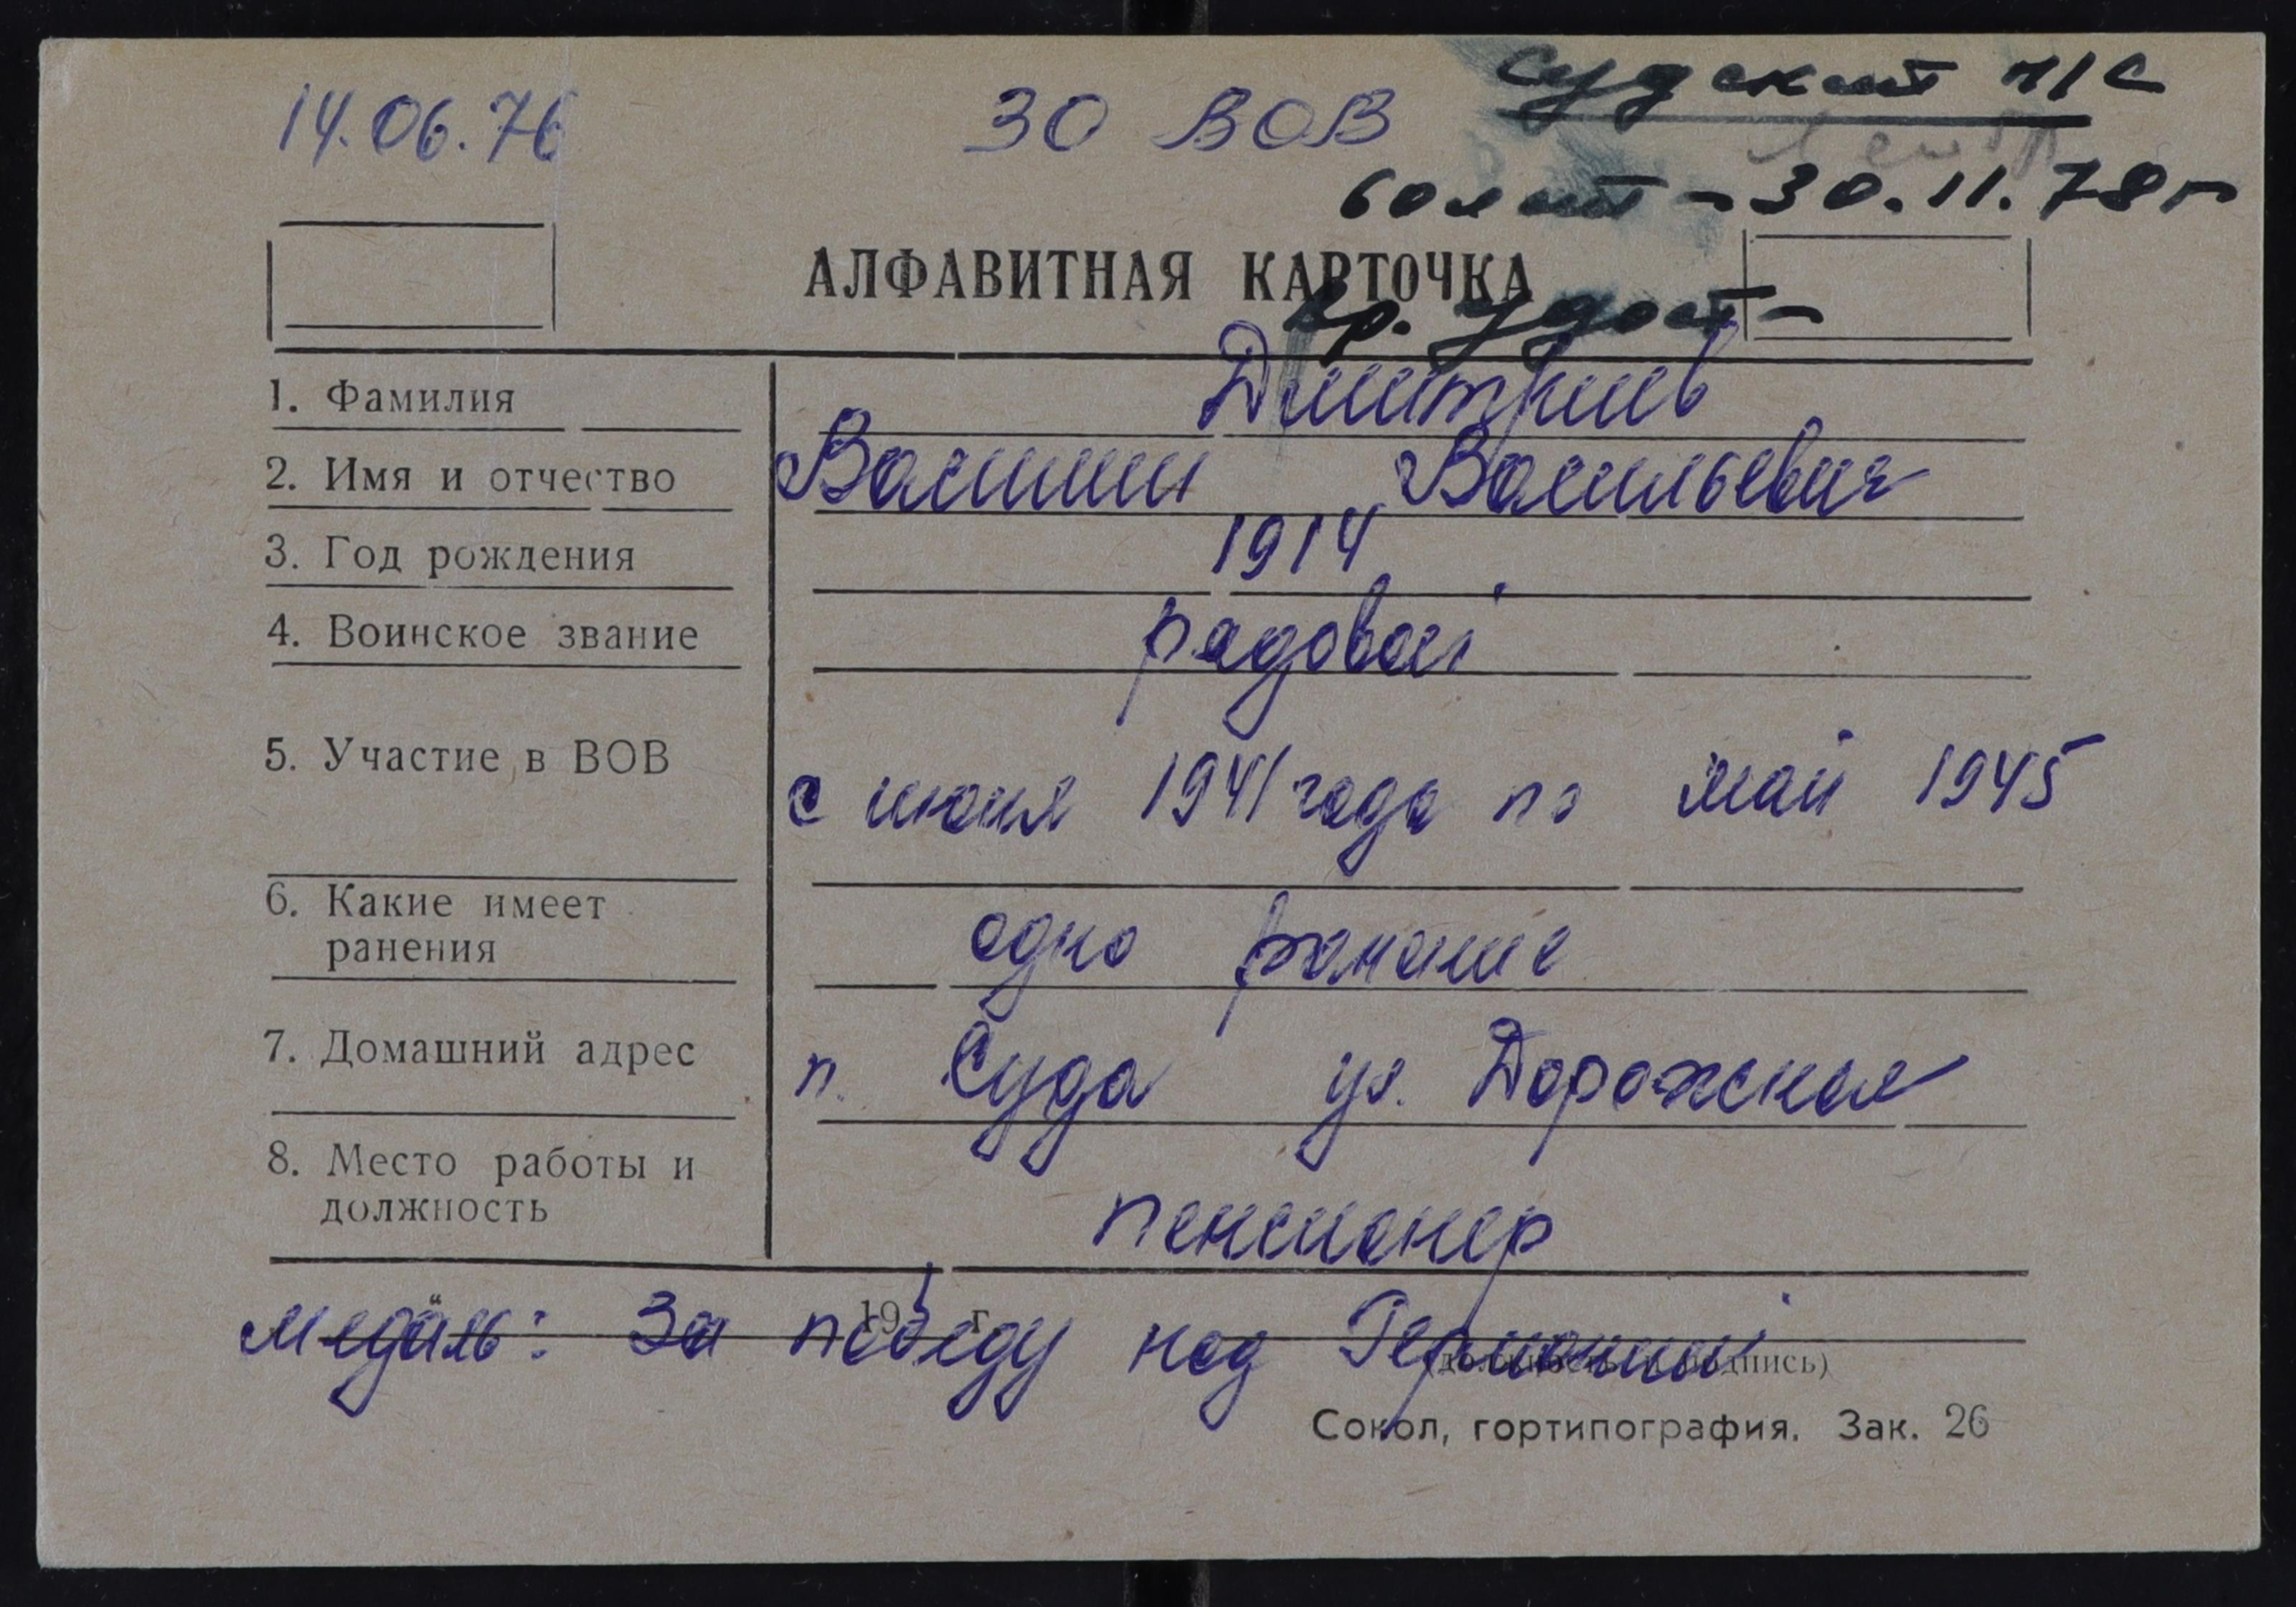 14.06.76
30 ВОВ
Судский п/с
60 лет - 30.11.78 г
АЛФАВИТНАЯ КАРТОЧКА
вр. удост-
1. Фамилия Дмитриев
2. Имя и отчество Василий Васильевич
3. Год рождения 1914
4. Воинское звание рядовой
5. Участие в ВОВ с июля 1941 года по май 1945
6. Какие имеет
ранения одно ранение
7. Домашний адрес п. Суда ул. Дорожная
8. Место работы и
должность пенсионер
медаль: За победу над Германией
" 19 г.
(должность и подпись)
Сокол, гортипография. Зак. 26